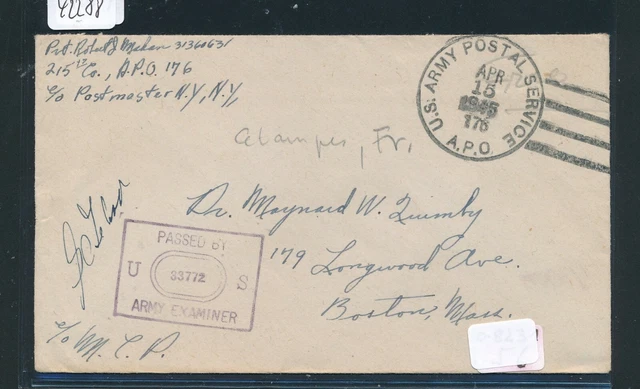 42288
Pvt. Robert J Mehan 31360631
215th Co., A.P.O. 176
c/o Postmaster N.Y., N.Y.
U.S. ARMY POSTAL SERVICE
APR
15
1945
176
A.P.O.
Etampes, Fr.
Dr. Maynard W. Quimby
179 Longwood Ave.
Boston, Mass.
PASSED BY
U 33772 S
ARMY EXAMINER
c/o M.C.P.